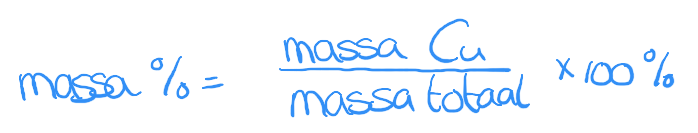 massa % = massa Cu / massa totaal × 100 %